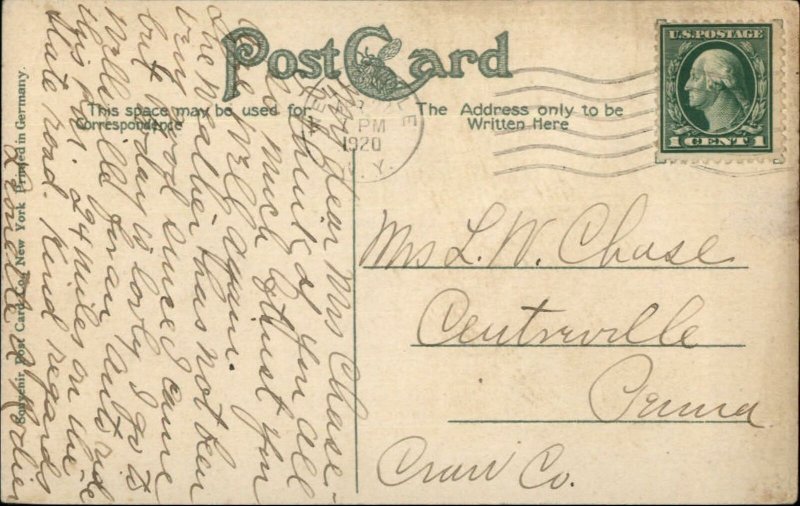 Post Card
This space may be used for
Correspondence
The Address only to be
Written Here
U.S. POSTAGE
1 CENT 1
PM
1920
N.Y.
Mrs L. W. Chase
Centreville
Penna
Craw Co.
My Dear Mrs Chase-
think of you all
so much. I trust you
are well again.
The weather has not been
very good since I came
but today is lovely I go to
Wellsville for an auto ride
this p.m. 24 miles on the
State road. Kind regards
Souvenir Post Card Co., New York Printed in Germany.